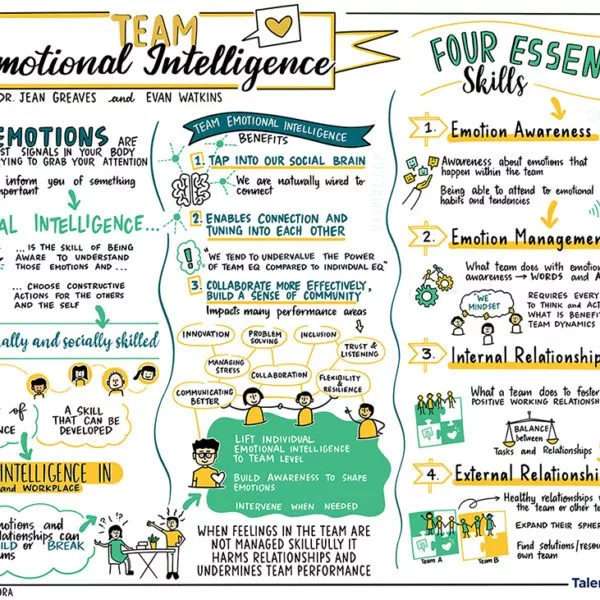 TEAM
motional Intelligence
DR. JEAN GREAVES and EVAN WATKINS
EMOTIONS ARE
ST SIGNALS IN YOUR BODY
YING TO GRAB YOUR ATTENTION
inform you of something
portant
AL INTELLIGENCE...
... IS THE SKILL OF BEING
AWARE TO UNDERSTAND
THOSE EMOTIONS AND ...
... CHOOSE CONSTRUCTIVE
ACTIONS FOR THE OTHERS
AND THE SELF
ally and socially skilled
of
NCE
A SKILL
THAT CAN BE
DEVELOPED
INTELLIGENCE IN
and WORKPLACE
motions and
lationships can
ILD or BREAK
ms
ORA
TEAM EMOTIONAL INTELLIGENCE
BENEFITS
1. TAP INTO OUR SOCIAL BRAIN
We are naturally wired to
connect
2. ENABLES CONNECTION AND
TUNING INTO EACH OTHER
"WE TEND TO UNDERVALUE THE POWER
OF TEAM EQ COMPARED TO INDIVIDUAL EQ"
3. COLLABORATE MORE EFFECTIVELY,
BUILD A SENSE OF COMMUNITY
Impacts many performance areas
INNOVATION
PROBLEM
SOLVING
INCLUSION
TRUST &
LISTENING
MANAGING
STRESS
COLLABORATION
FLEXIBILITY
& RESILIENCE
COMMUNICATING
BETTER
LIFT INDIVIDUAL
EMOTIONAL INTELLIGENCE
TO TEAM LEVEL
BUILD AWARENESS TO SHAPE
EMOTIONS
INTERVENE WHEN NEEDED
WHEN FEELINGS IN THE TEAM ARE
NOT MANAGED SKILLFULLY IT
HARMS RELATIONSHIPS AND
UNDERMINES TEAM PERFORMANCE
FOUR ESSEN
Skills
1. Emotion Awareness
Awareness about emotions that
happen within the team
Being able to attend to emotional
habits and tendencies
2. Emotion Managemen
What team does with emotion
awareness → WORDS and A
WE
MINDSET
REQUIRES EVERY
TO THINK and AC
WHAT IS BENEFI
TEAM DYNAMICS
3. Internal Relationship
What a team does to foster
POSITIVE WORKING RELATIONSH
BALANCE
between
Tasks and Relationships
4. External Relationshi
Healthy relationships w
the team or other te
EXPAND THEIR SPHER
Find solutions/resou
own team
Team A
Team B
Talen